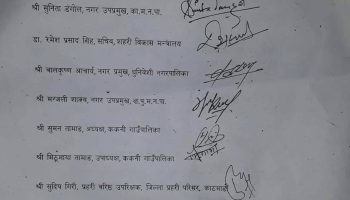 श्री सुनिता डंगोल, नगर उपप्रमुख, का.म.न.पा.
डा. रमेश प्रसाद सिंह, सचिव, शहरी विकास मन्त्रालय
श्री बालकृष्ण आचार्य, नगर प्रमुख, धुनिवेशी नगरपालिका
श्री मन्जली शाक्य, नगर उपप्रमुख, का.पु.म.न.पा.
श्री सुमन तामाङ, अध्यक्ष, ककनी गाउँपालिका
श्री मिठुमाया तामाङ, उपाध्यक्ष, ककनी गाउँपालिका
श्री सुदिप गिरी, प्रहरी वरिष्ठ उपरिक्षक, जिल्ला प्रहरी परिसर, काठमाडौं